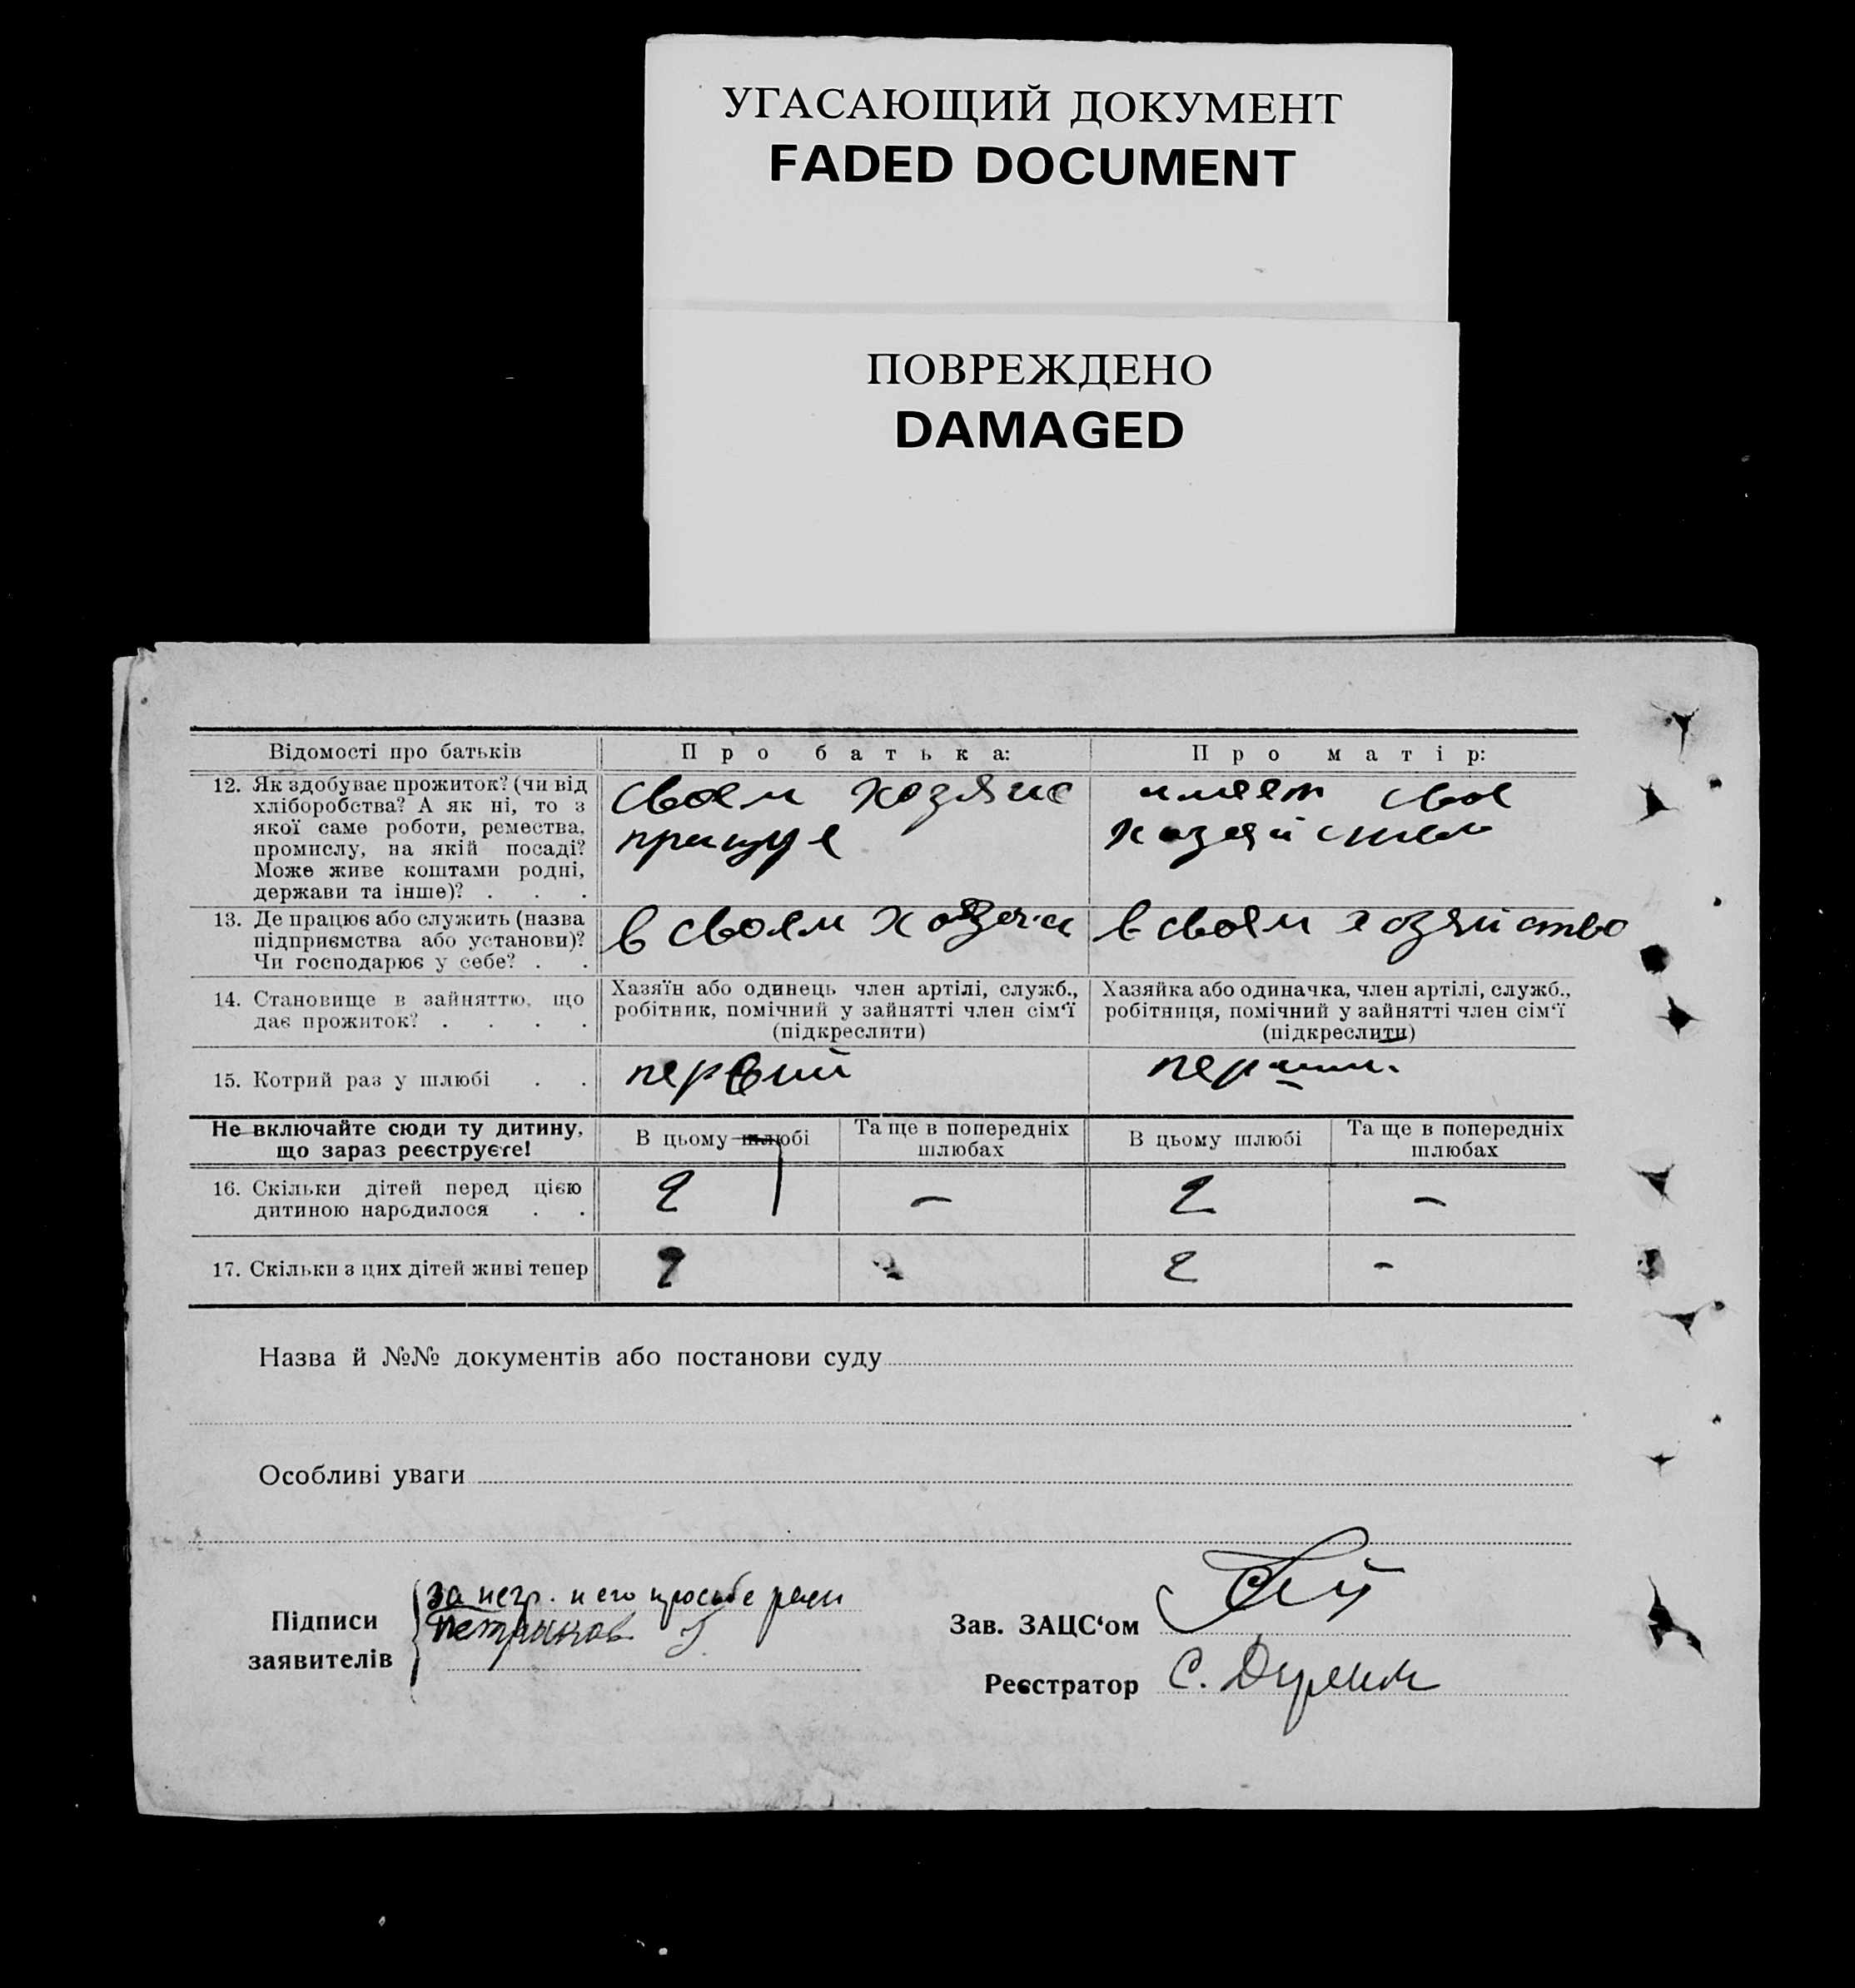 УГАСАЮЩИЙ ДОКУМЕНТ
FADED DOCUMENT
ПОВРЕЖДЕНО
DAMAGED
Відомості про батьків
Про батька:
Про матір:
12. Як здобуває прожиток? (чи від
хліборобства? А як ні, то з
якої саме роботи, ремества,
промислу, на якій посаді?
Може живе коштами родні,
держави та інше)? . . .
своем хозяис
працуе
имеет свое
13. Де працює або служить (назва
підприємства або установи)?
Чи господарює у себе? . .
в своем
в своем хозяйство
14. Становище в зайняттю, що
дає прожиток? . . . .
Хазяїн або одинець член артілі, служб.,
робітник, помічний у зайнятті член сім‘ї
(підкреслити)
Хазяйка або одиначка, член артілі, служб.,
робітниця, помічний у зайнятті член сім‘ї
(підкреслити)
15. Котрий раз у шлюбі . .
первий
Не включайте сюди ту дитину,
що зараз реєструєте!
В цьому шлюбі
Та ще в попередніх
шлюбах
В цьому шлюбі
Та ще в попередніх
шлюбах
16. Скільки дітей перед цією
дитиною народилося . .
2
–
2
–
17. Скільки з цих дітей живі тепер
2
2
-
Назва й №№ документів або постанови суду
Особливі уваги
Підписи
заявителів
за негр. и его просьбе
Зав. ЗАЦС‘ом
Реєстратор
С.